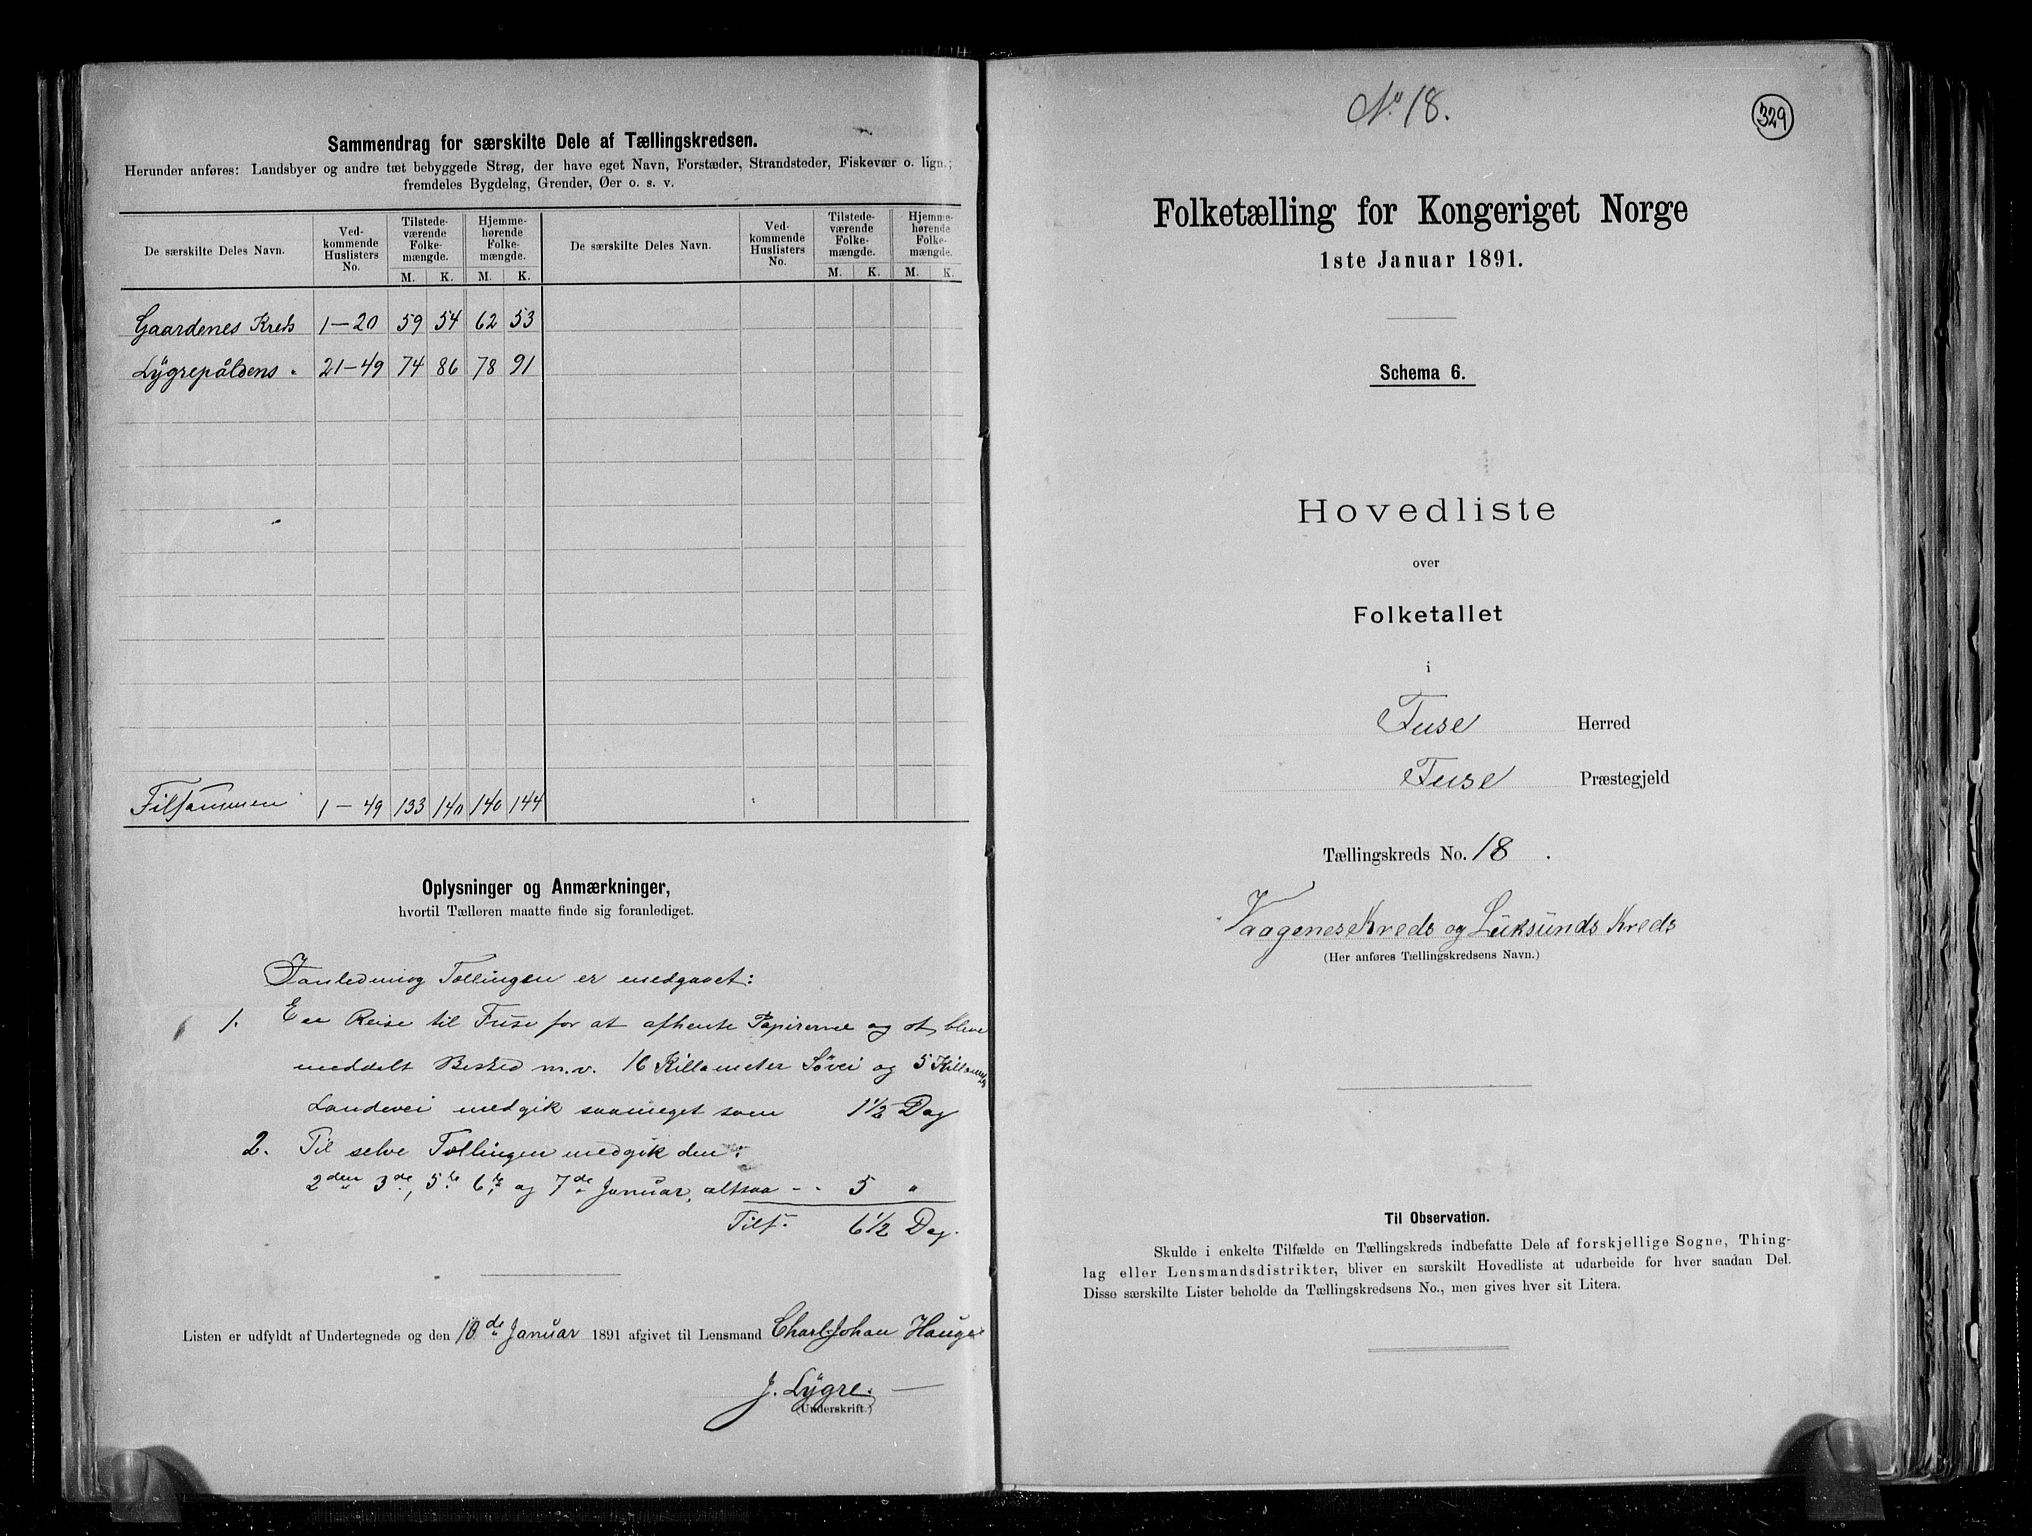 Sammendrag for særskilte Dele af Tællingskredsen.
Herunder anføres: Landsbyer og andre tæt bebyggede Strøg, der have eget Navn, Forstæder, Strandsteder, Fiskevær o. lign.;
fremdeles Bygdelag, Grender, Øer o. s. v.
De særskilte Deles Navn. Ved-kommende Huslisters No. Tilstede-værende Folke-mængde. Hjemme-hørende Folke-mængde. De særskilte Deles Navn. Ved-kommende Huslisters No. Tilstede-værende Folke-mængde. Hjemme-hørende Folke-mængde.
M. K. M. K. M. K. M. K.
Gaardenes Kreds 1-20 59 54 62 53
Lÿgrepåldens " 21-49 74 86 78 91
Tilsammen 1-49 133 140 140 144
Oplysninger og Anmærkninger,
hvortil Tælleren maatte finde sig foranlediget.
Tællingen er medgaaet:
1. En Reise til Fuse for at afhente Papirerne og at blive
meddelt Besked m.v. 16 Killometer Søvei og 5
Landevei medgik saameget som 1 1/2 Dag
2. Til selve Tællingen medgik den:
2den 3de, 5te 6te og 7de Januar, altsaa - - 5 "
Tils. 6 1/2 Dag.
Listen er udfyldt af Undertegnede og den 10de Januar 1891 afgivet til Lensmand Charl Johan Hauge
J. Lÿgre.
(Underskrift.)
No 18.
329
Folketælling for Kongeriget Norge
1ste Januar 1891.
Schema 6.
Hovedliste
over
Folketallet
i
Fuse Herred
Fuse Præstegjeld
Tællingskreds No. 18.
Vaagenes Kreds og Lüksunds Kreds
(Her anføres Tællingskredsens Navn.)
Til Observation.
Skulde i enkelte Tilfælde en Tællingskreds indbefatte Dele af forskjellige Sogne, Thing-
lag eller Lensmandsdistrikter, bliver en særskilt Hovedliste at udarbeide for hver saadan Del.
Disse særskilte Lister beholde da Tællingskredsens No., men gives hver sit Litera.